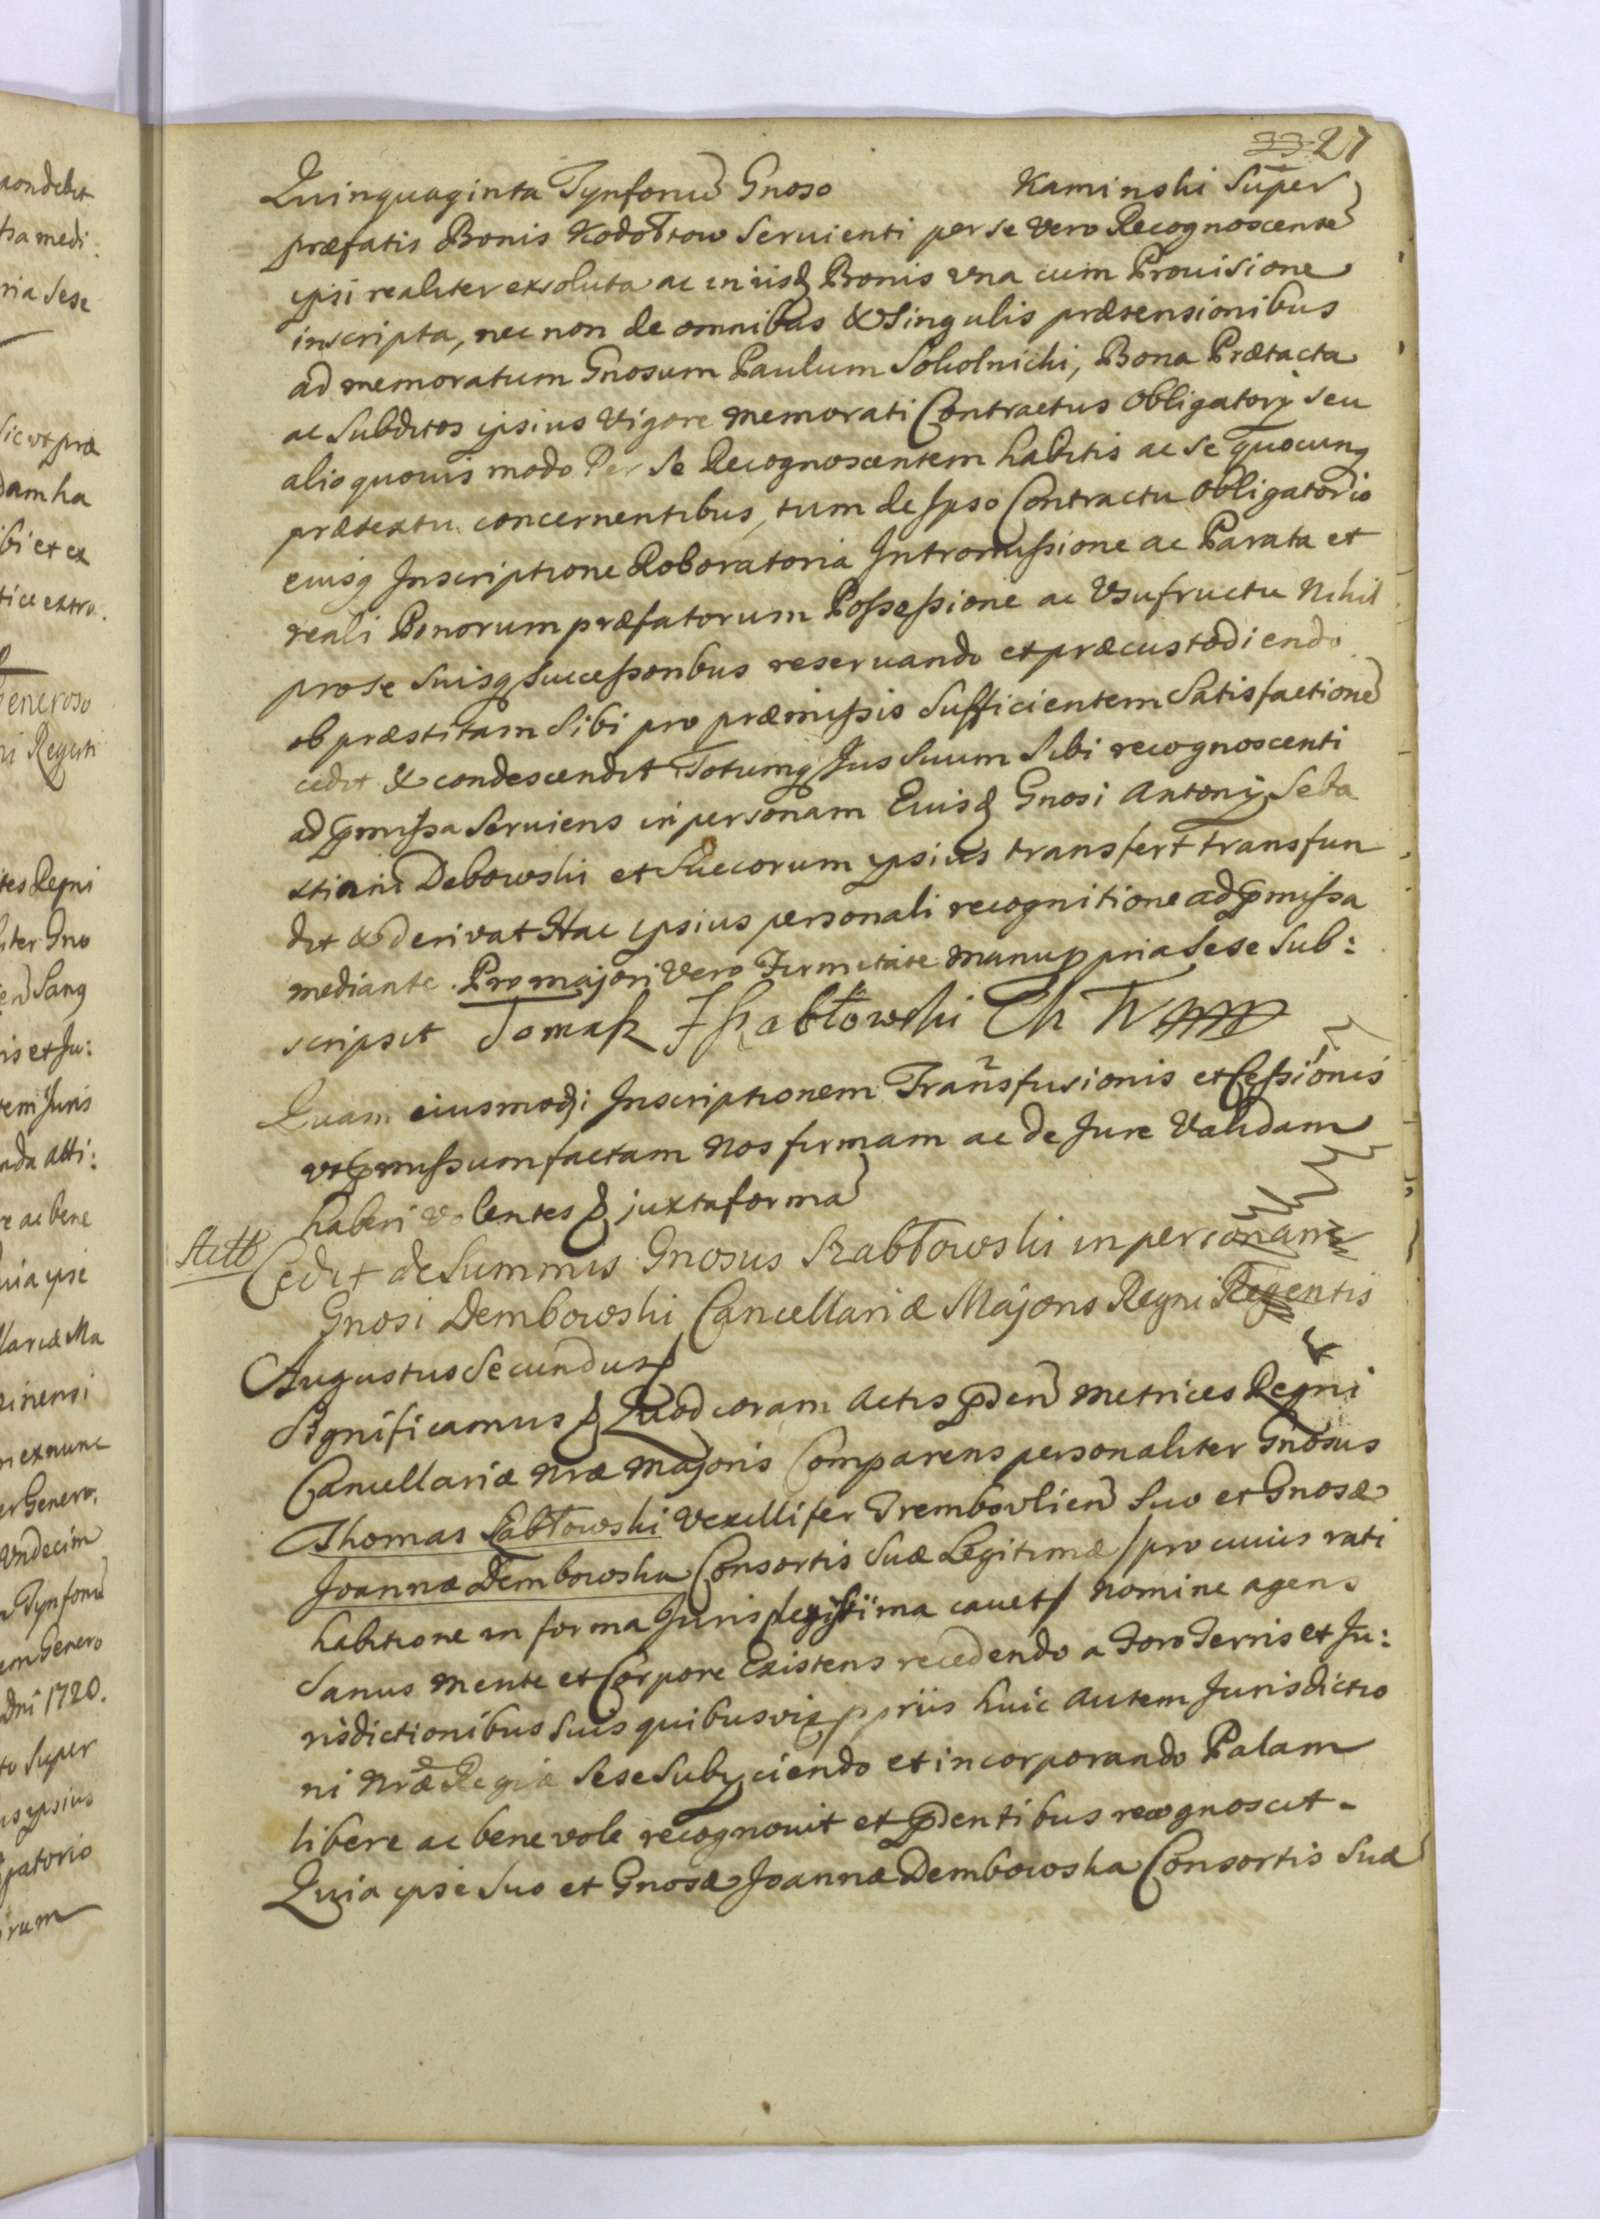 33 27
Quinquaginta Tynforũ Gnoso Kaminski Super
præfatis Bonis Kodobrow Seruienti per se Vero Recognoscentẽ
ipsi realiter exsoluta ac in iisd Bonis vna cum Prouisione
inscripta, nec non de omnibus & Singulis prætensionibus
ad memoratum Gnosum Paulum Sokolnicki, Bona Prætacta
ac Subditos ipsius Vigore memorati Contractus Obligatorÿ Seu
alio quouis modo Per Se Recognoscentem habitis ac Se quocunq
prætextu concernentibus, tum de Ipso Contractu Obligatorio
eiusq Inscriptione Roboratoria Intromissione ac Parata et
reali Bonorum præfatorum Possessione ac Vsufructu Nihil
pro Se Suisq Successoribus reseruando et præcustodiendo
ob præstitam Sibi pro præmissis Sufficientem Satisfactionẽ
cedit & condescendit Totumq Jus Suum Sibi recognoscenti
ad pmissa Seruiens in personam Eiusd Gnosi Antonÿ Seba
stiani Debowski et Succorum ipsius transfert transfun
dit & derivat Hac ipsius personali recognitione ad pmissa
mediante. Pro majori Vero Firmitate manu ppria Sese Sub:
scripsit Tomasz Szabłowski Ch T
Quam eiusmodi Inscriptionem Transfusionis et Cessionis
vt pmissum factam Nos firmam ac de Jure Validam
haberi volentes & juxta formã
Cedit de Summis Gnosus Szabłowski in personam
Gnosi Dembowski Cancellariæ Majoris Regni Regentis
Augustus Secundus
Significamus & Quod coram Actis pdeñ Metrices Regni
Cancellariæ Nræ Majoris Comparens personaliter Gnosus
Thomas Szabłowski Vexillifer Trembovlieñ Suo et Gnosæ
Joannæ Dembowska Consortis Suæ Legitimæ / pro cuius rati
habitione in forma Juris plenissima cauet / nomine agens
Sanus Mente et Corpore Existens recedendo a Foro Terris et Ju:
risdictionibus Suis quibusvis ppriis huic Autem Jurisdictio
ni Nræ Regiæ Sese Subÿciendo et incorporando Palam
libere ac benevole recognouit et pdentibus recognoscit.
Quia ipse Suo et Gnosæ Joannæ Dembowska Consortis Suæ